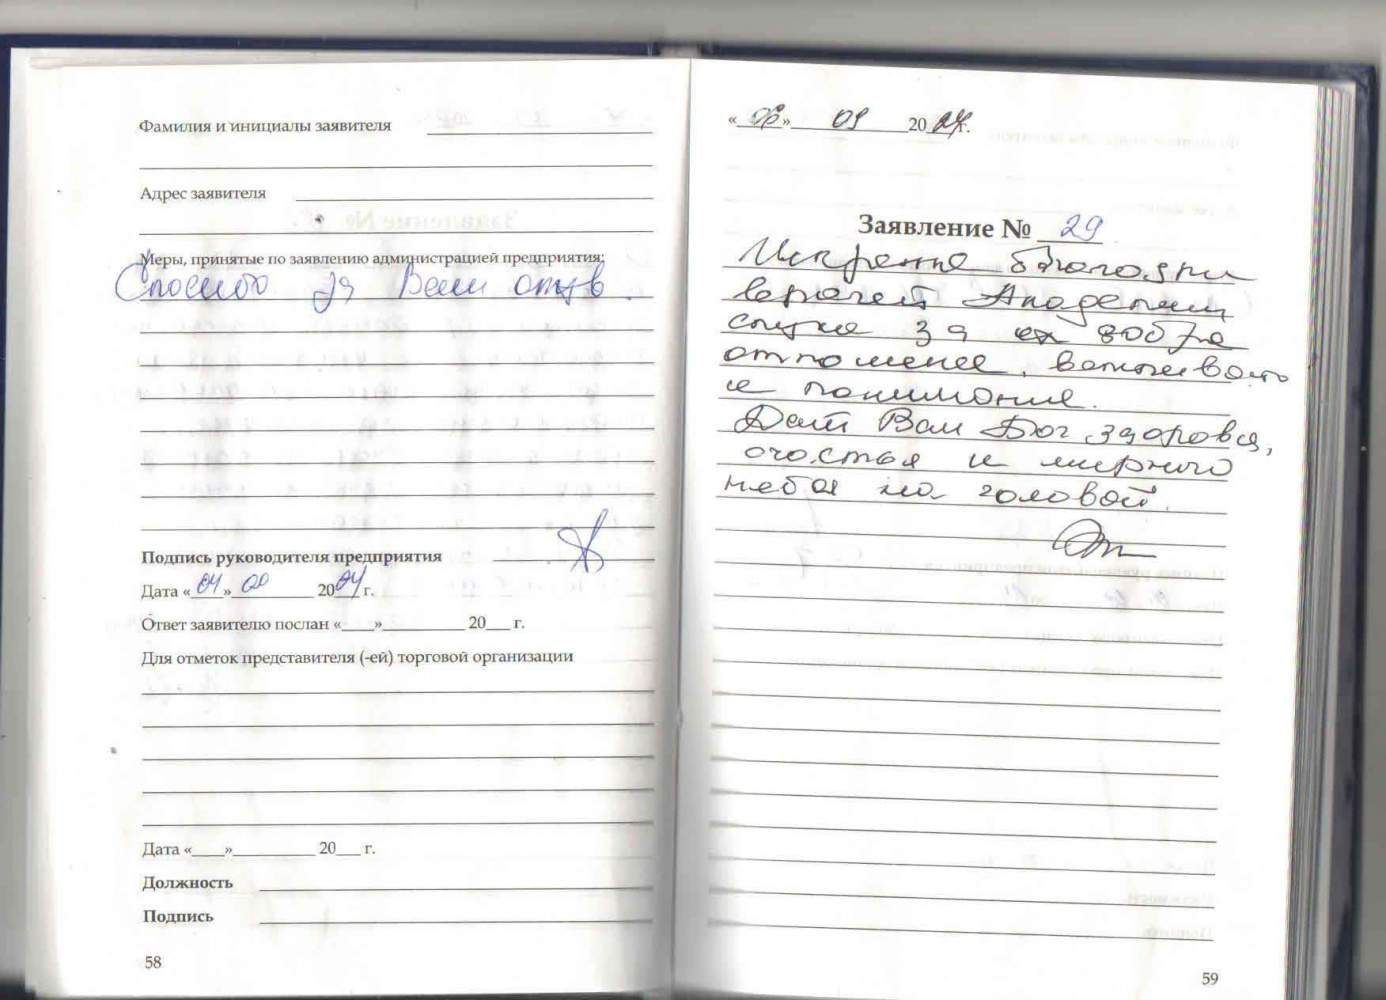 Фамилия и инициалы заявителя
Адрес заявителя
Меры, принятые по заявлению администрацией предприятия:
Спасибо за Ваш отзыв.
Подпись руководителя предприятия
Дата «04» 00 2024 г.
Ответ заявителю послан «___»_________ 20___ г.
Для отметок представителя (-ей) торговой организации
Дата «___»_________ 20___ г.
Должность
Подпись
58
« » 09 2024 г.
Заявление № 29
Искренне благодарим
врачей Академии
слуха за их доброе
отношение, вежливость
и понимание.
Дай Вам Бог здоровья,
счастья и мирного
неба над головой.
59